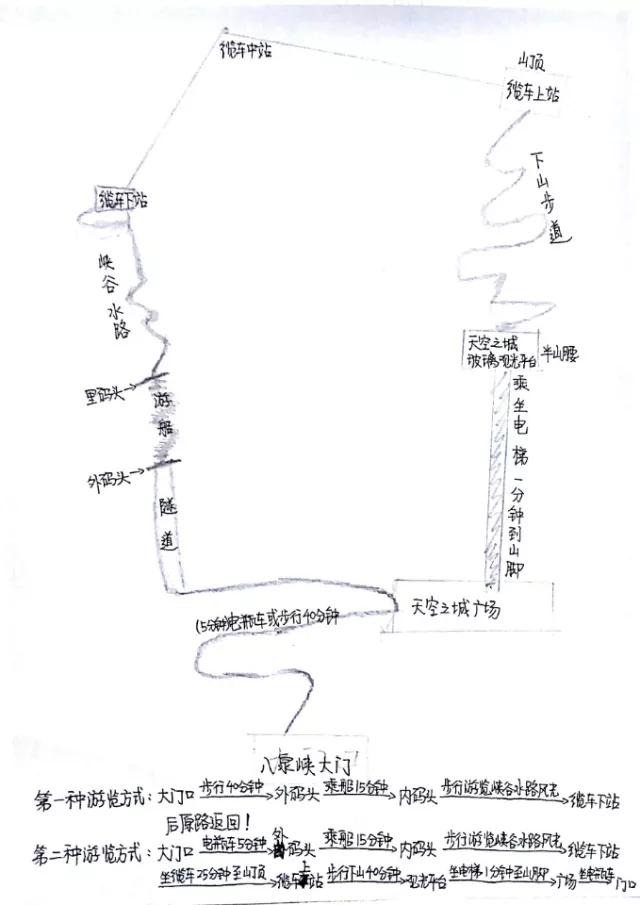 缆车中站
山顶
缆车上站
下山步道
缆车下站
峡谷水路
天空之城
玻璃观光平台
半山腰
里码头→
游船
乘坐电梯一分钟到山脚
外码头→
隧道
天空之城广场
(5分钟)电瓶车或步行40分钟
八泉峡大门
第一种游览方式：大门口 步行40分钟 外码头 乘船15分钟 内码头 步行游览峡谷水路风光 缆车下站
后原路返回！
第二种游览方式：大门口 电瓶车5分钟 外码头 乘船15分钟 内码头 步行游览峡谷水路风光 缆车下站
坐缆车25分钟至山顶 缆车上站 步行下山40分钟 观光平台 坐电梯1分钟至山脚 广场 坐电瓶车 门口